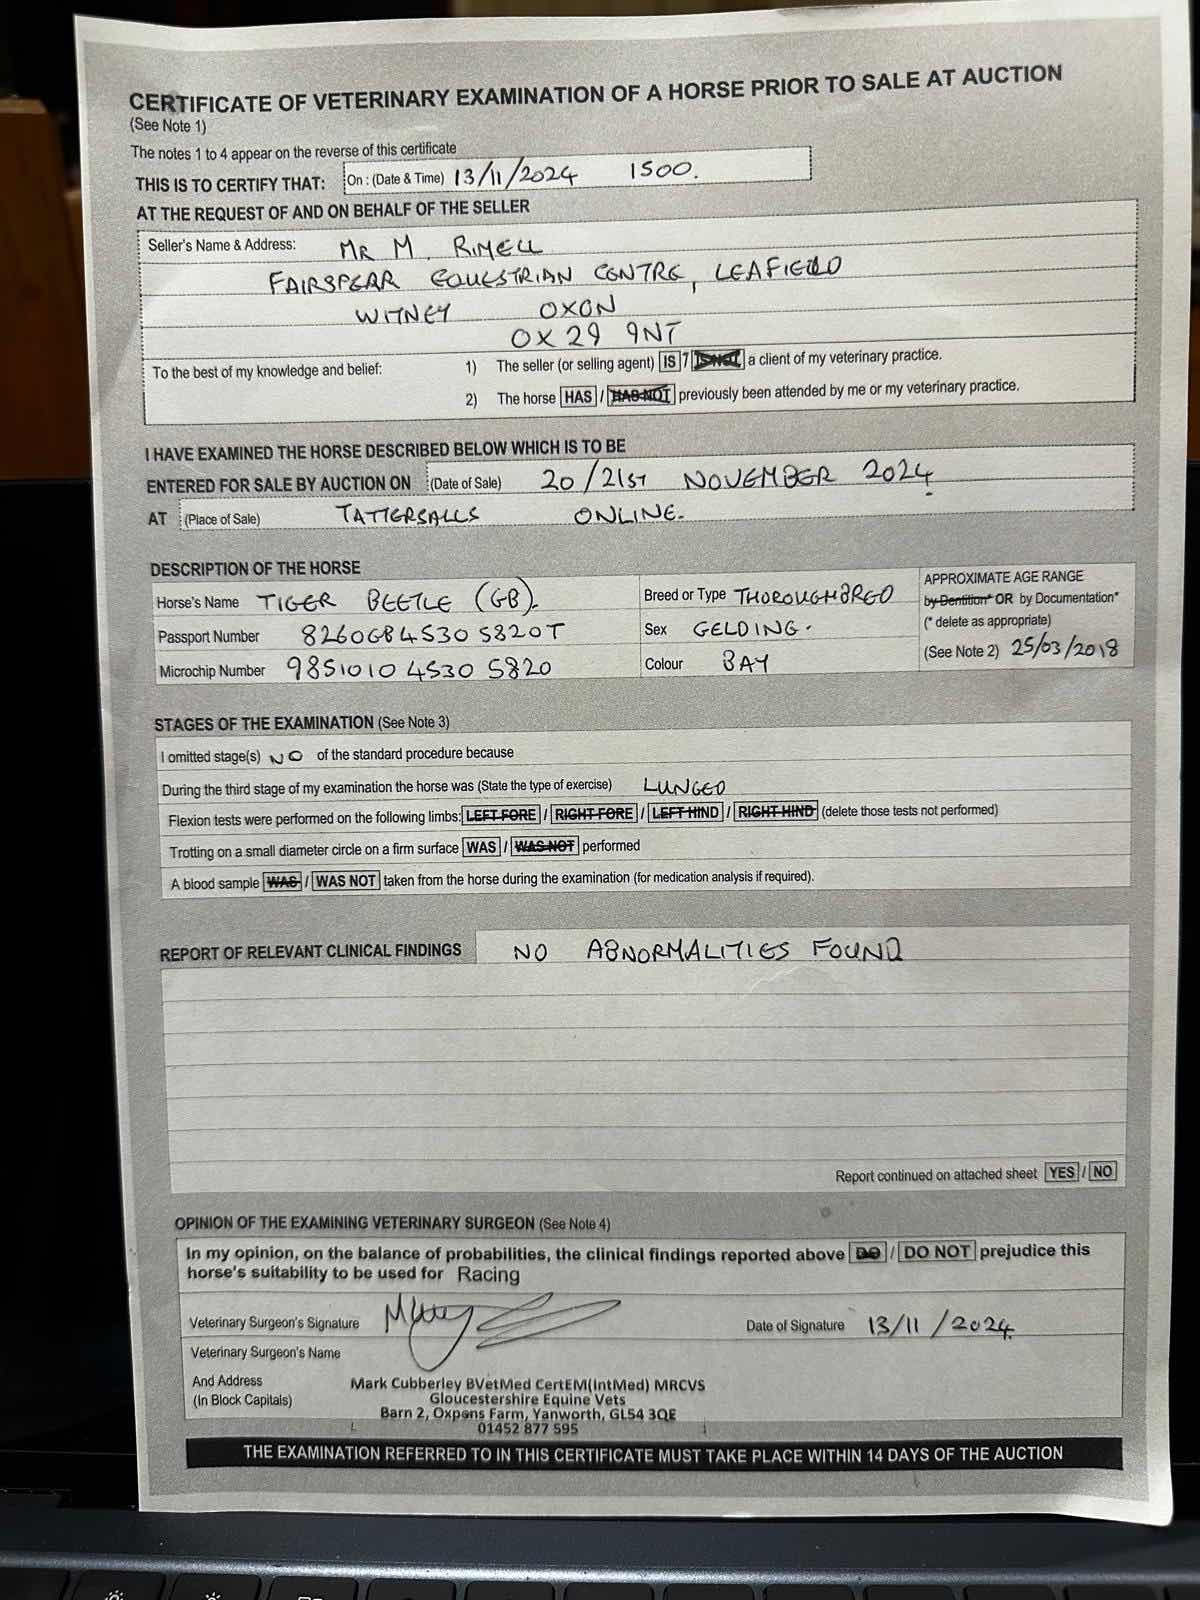 CERTIFICATE OF VETERINARY EXAMINATION OF A HORSE PRIOR TO SALE AT AUCTION
(See Note 1)
The notes 1 to 4 appear on the reverse of this certificate
THIS IS TO CERTIFY THAT: On : (Date & Time) 13/11/2024 1500.
AT THE REQUEST OF AND ON BEHALF OF THE SELLER
Seller's Name & Address: MR M. RIMELL
FAIRSPEAR EQUESTRIAN CENTRE, LEAFIELD
WITNEY OXON
OX29 9NT
To the best of my knowledge and belief: 1) The seller (or selling agent) IS / IS NOT a client of my veterinary practice.
2) The horse HAS / HAS NOT previously been attended by me or my veterinary practice.
I HAVE EXAMINED THE HORSE DESCRIBED BELOW WHICH IS TO BE
ENTERED FOR SALE BY AUCTION ON (Date of Sale) 20/21ST NOVEMBER 2024.
AT (Place of Sale) TATTERSALLS ONLINE.
DESCRIPTION OF THE HORSE
Horse's Name TIGER BEETLE (GB). Breed or Type THOROUGHBRED
Passport Number 8260GB45305820T Sex GELDING.
Microchip Number 985101045305820 Colour BAY
APPROXIMATE AGE RANGE
by Dentition* OR by Documentation*
(* delete as appropriate)
(See Note 2) 25/03/2018
STAGES OF THE EXAMINATION (See Note 3)
I omitted stage(s) NO of the standard procedure because
During the third stage of my examination the horse was (State the type of exercise) LUNGED
Flexion tests were performed on the following limbs: LEFT FORE / RIGHT FORE / LEFT HIND / RIGHT HIND (delete those tests not performed)
Trotting on a small diameter circle on a firm surface WAS / WAS NOT performed
A blood sample WAS / WAS NOT taken from the horse during the examination (for medication analysis if required).
REPORT OF RELEVANT CLINICAL FINDINGS NO ABNORMALITIES FOUND
Report continued on attached sheet YES / NO
OPINION OF THE EXAMINING VETERINARY SURGEON (See Note 4)
In my opinion, on the balance of probabilities, the clinical findings reported above DO / DO NOT prejudice this
horse's suitability to be used for Racing
Veterinary Surgeon's Signature Date of Signature 13/11/2024
Veterinary Surgeon's Name
And Address
(In Block Capitals)
Mark Cubberley BVetMed CertEM(IntMed) MRCVS
Gloucestershire Equine Vets
Barn 2, Oxpens Farm, Yanworth, GL54 3QE
01452 877 595
THE EXAMINATION REFERRED TO IN THIS CERTIFICATE MUST TAKE PLACE WITHIN 14 DAYS OF THE AUCTION